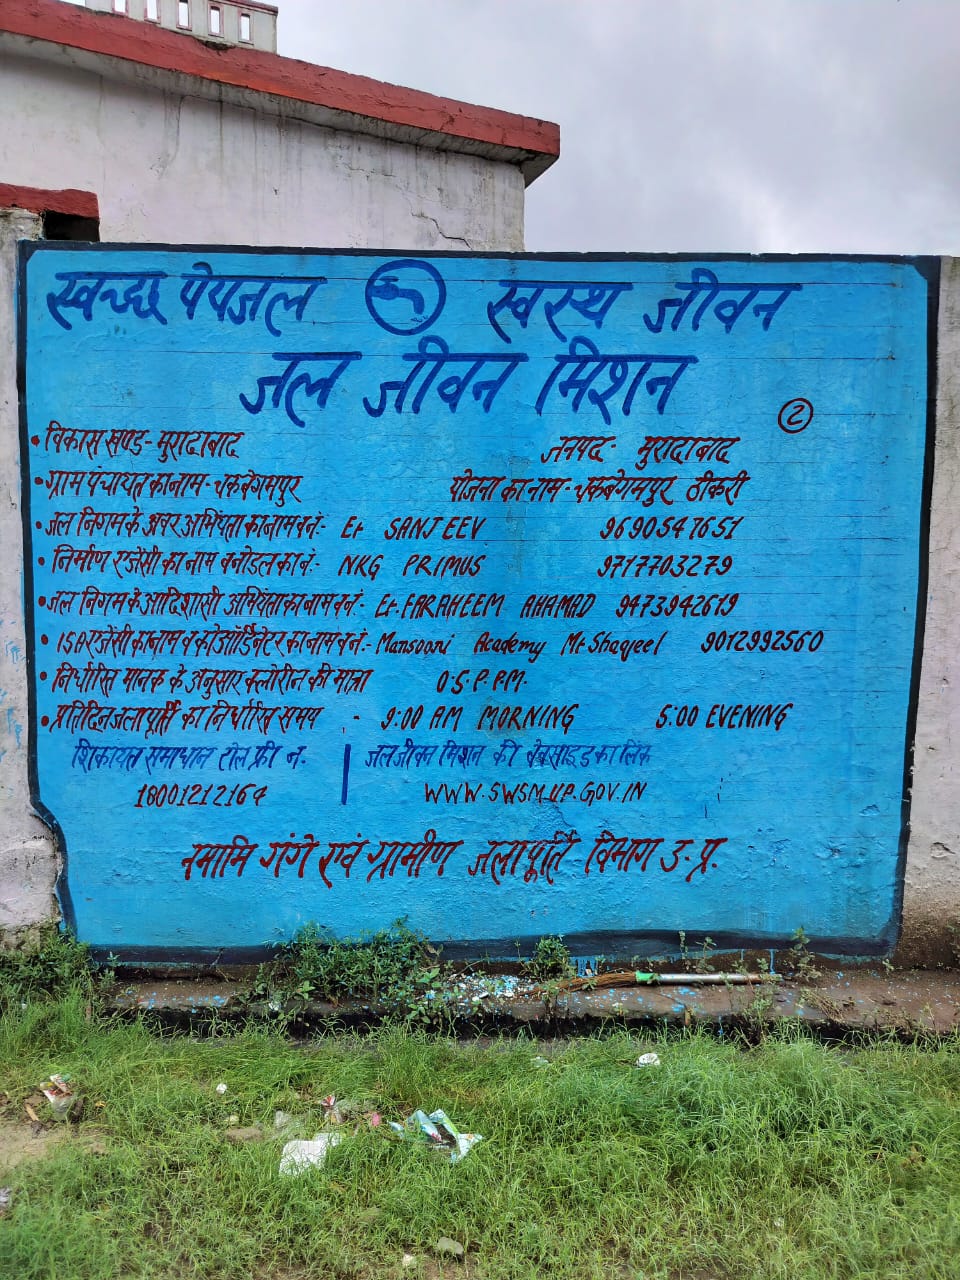 स्वच्छ पेयजल स्वस्थ जीवन
जल जीवन मिशन
2
• विकास खण्ड- मुरादाबाद जनपद- मुरादाबाद
• ग्राम पंचायत का नाम- चकबेगमपुर योजना का नाम- चकबेगमपुर ठीकरी
• जल निगम के अवर अभियंता का नाम व नं:- Er SANJEEV 9690547651
• निर्माण एजेंसी का नाम व नोडल का नं:- NKG PRIMUS 9717703279
• जल निगम के आदिशासी अभियंता का नाम व नं:- Er. FARAHEEM AHAMAD 9473942619
• ISA एजेंसी का नाम व कोऑर्डिनेटर का नाम व नं:- Mansoori Academy Mr Shaqeel 9012992560
• निर्धारित मानक के अनुसार क्लोरीन की मात्रा 0.5 P.P.M.
• प्रतिदिन जलापूर्ति का निर्धारित समय - 9:00 AM MORNING 5:00 EVENING
शिकायत समाधान टोल फ्री नं. जल जीवन मिशन की वेबसाइड का लिंक
18001212164 WWW.SWSM.UP.GOV.IN
नमामि गंगे एवं ग्रामीण जलापूर्ति विभाग उ.प्र.